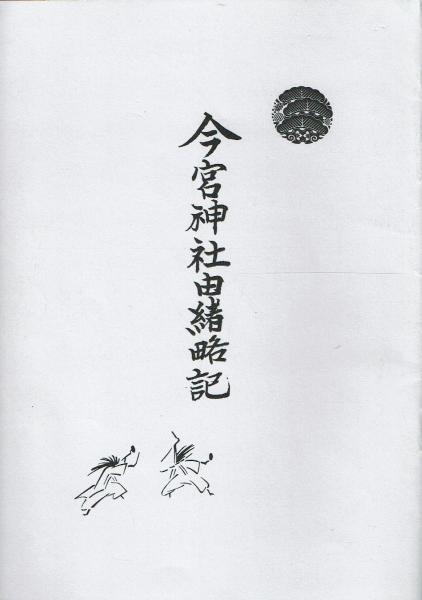 今宮神社由緒略記